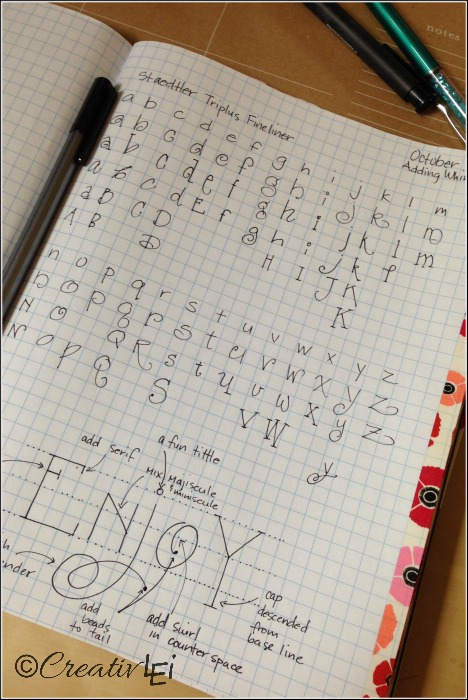 notes
Staedtler Triplus Fineliner
October
Adding Whim
a b c d e f g h i j k l m
a b c d e f g h i j k l m
a b c d e f g h i j k l m
a b c d E f g h i j k f
a B C D H I J K
A B D K
n o p q r s t u v w x y z
n o p q r s t u v w x y z
N O P Q R s t u v w X y z
N O P Q S V W y
add serif
a fun tittle
mix majiscule
& miniscule
ENJOY
add
beads
to tail
add swirl
in counterspace
cap
descended
from
base line
©CreativLEi